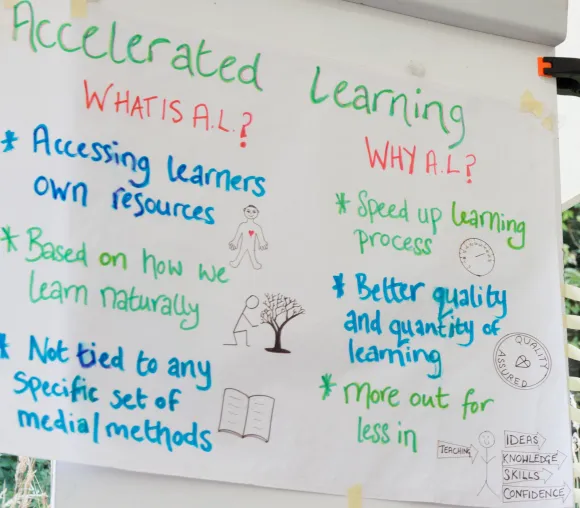 Accelerated Learning
WHAT IS A.L.?
* Accessing learners
own resources
* Based on how we
learn naturally
* Not tied to any
specific set of
media/methods
WHY A.L?
* Speed up learning
process
* Better quality
and quantity of
learning
QUALITY
ASSURED
* More out for
less in
TEACHING
IDEAS
KNOWLEDGE
SKILLS
CONFIDENCE